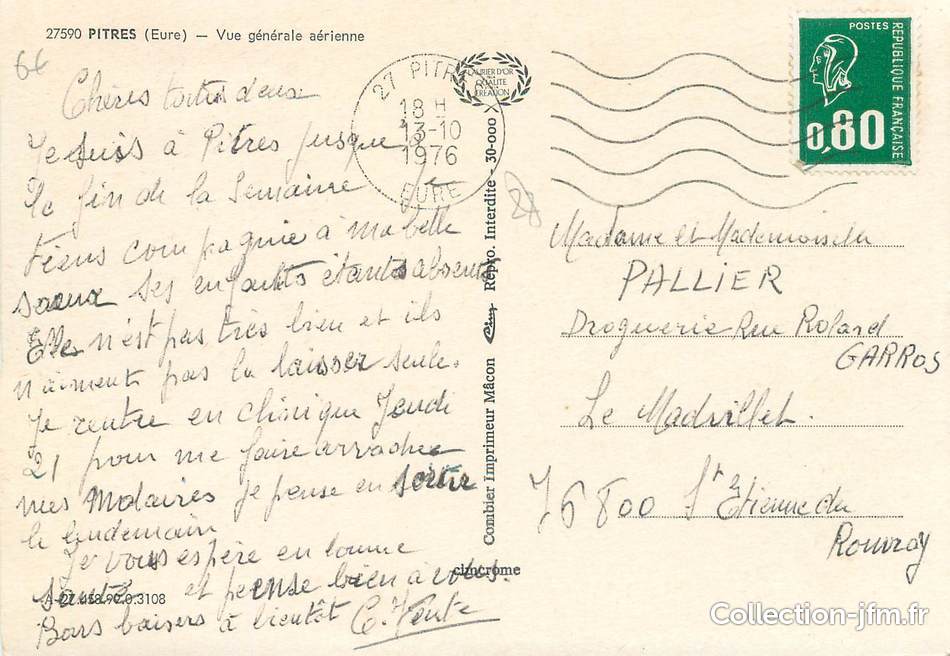 27590 PITRES (Eure) — Vue générale aérienne
6€
Chères toutes deux
Je suis à Pitres jusque
la fin de la semaine je
tiens compagnie à ma belle
saeur ses enfants étants absents
Elle n'est pas très bien et ils
n'aiment pas la laisser seule.
Je rentre en clinique Jeudi
21 pour me faire arracher
mes molaires je pense en sortir
le lendemain
Je vous espère en bonne
santé et pense bien à vous.
Bons baisers à bientôt
A-27.458.90.0.3108
27 PITRES
18 H
13-10
1976
EURE
LAURIER D'OR
QUALITÉ
CRÉATION
Combier Imprimeur Mâcon
Cim
Repro. Interdite - 30-000 X
cimcrome
POSTES
REPUBLIQUE FRANÇAISE
0,80
Madame et Mademoiselle
PALLIER
Droguerie Rue Roland
GARROS
Le Madrillet.
76800 St Etienne du
Rouvray
Collection-jfm.fr